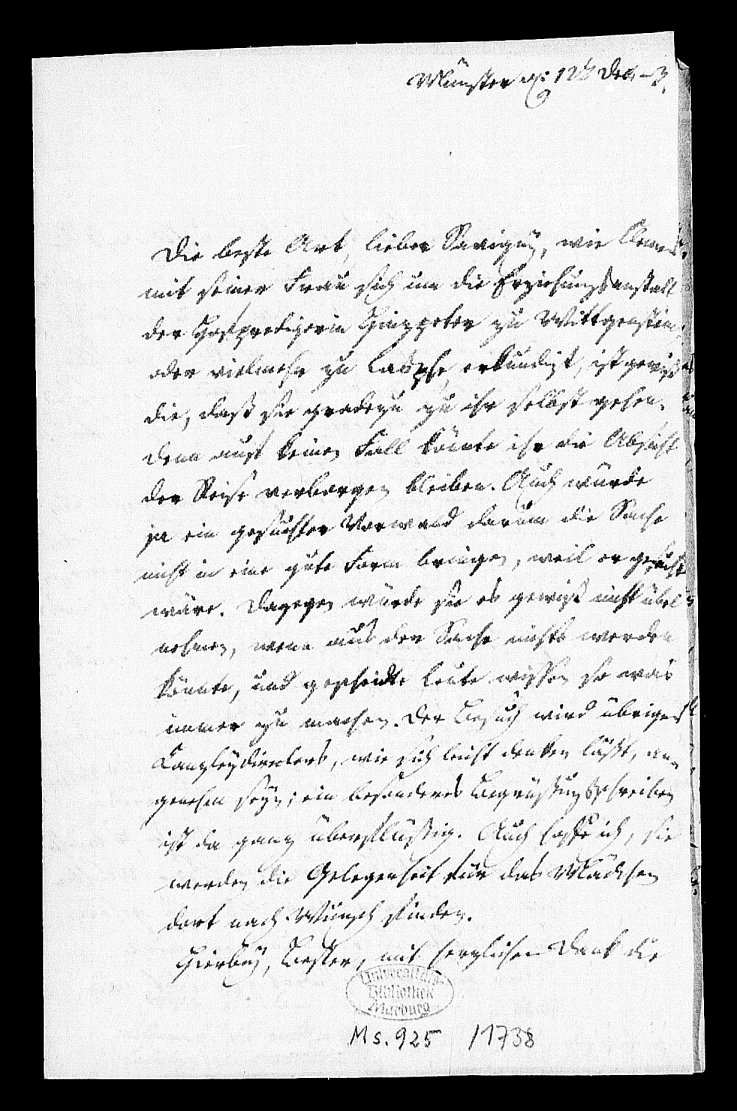 Münster d. 12 Dec. 3.
Die beste Art, lieber Savigny, wie Clemens
mit seiner Frau sich um die Erziehungsanstalt
der Hofpredigerin zu Wittgenstein,
oder vielmehr zu Lasphe, erkundigt, ist gewiß
die, daß sie gradezu zu ihr selbst gehen.
Denn auf keinen Fall könnte ihr die Absicht
der Reise verborgen bleiben. Auch würde
ja ein gesuchter Vorwand darum die Sache
nicht in eine gute Form bringen, weil er gesucht
wäre. Dagegen würde sie es gewiß nicht übel
nehmen, wenn aus der Sache nichts werden
könnte, und gescheidte Leute wissen so was
immer zu machen. Der Besuch wird übrigens
Canzleydirectors, wie sich leicht denken läßt, an-
genehm seyn; ein besonderes Begrüßungsschreiben
ist da ganz überflüßig. Auch hoffe ich, sie
werden die Gelegenheit für das Mädchen
dort nach Wunsch finden.
Hierbey, Bester, mit herzlichem Dank die
Universitäts-
Bibliothek
Marburg
Ms. 925 /1738